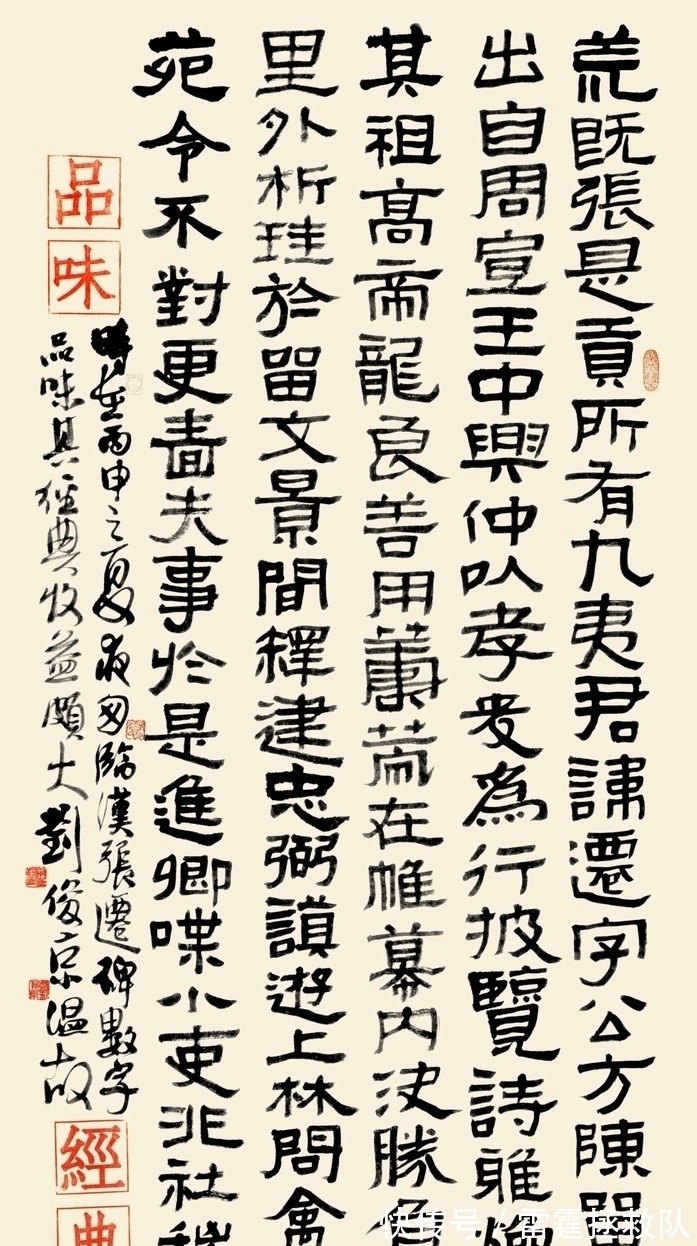 荒既張是貢所有九夷君諱遷字公方陳
出自周宣王中興仲以孝友為行披覽詩雅
其祖高帝龍良善用蕭苛在帷幕內決勝負
里外析珪於留文景間釋建忠弼謨遊上林問禽
苑令不對更嗇夫事於是進卿喋小吏非社稷
時在丙申之夏夜囱臨漢張遷碑數字
品味其經典收益頗大劉俊京溫故
品味
經典
快传号/雷霆拯救队